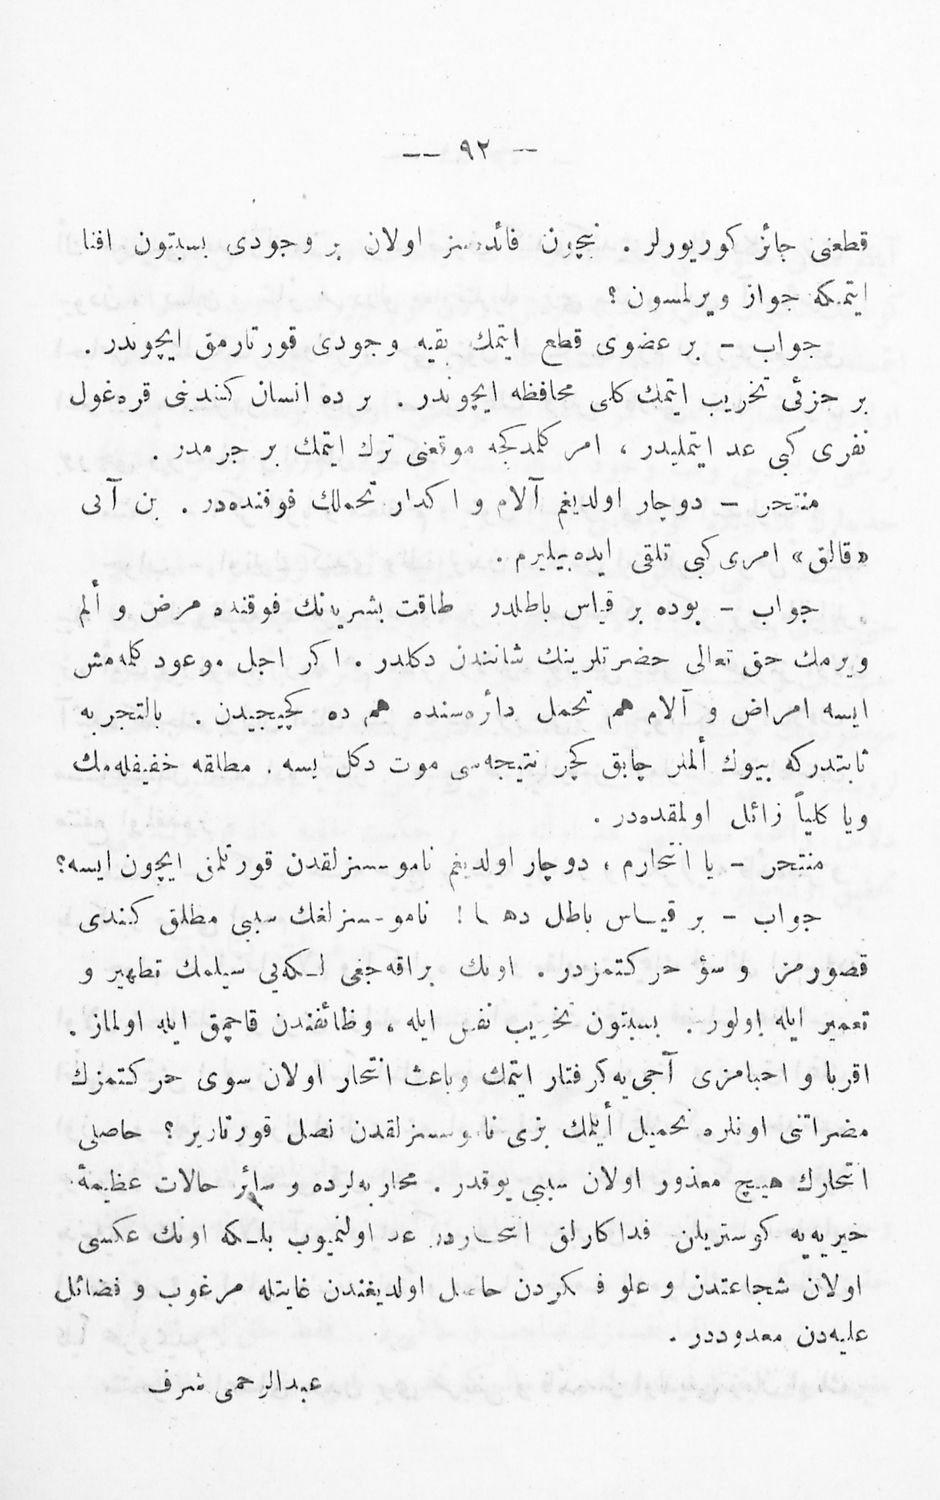 — ٩٢ —
قطعنی جائز كوریورلر . نیچون فائده‌سز اولان بر وجودی بسبتون افنا
ایتمكه جواز ویرلمسون ؟
جواب – بر عضوی قطع ایتمك بقیه وجودی قورتارمق ایچوندر .
بر جزئی تخریب ایتمك كلی محافظه ایچوندر . بر ده انسان كندینی قره‌غول
نفری كبی عد ایتملیدر ، امر كلمدكجه موقعنی ترك ایتمك بر جرمدر .
منتحر – دوچار اولدیغم آلام و اكدار تحملك فوقنده‌در . بن آنی
«قالق» امری كبی تلقی ایده‌بیلیرم .
جواب – بوده بر قیاس باطلدر طاقت بشریه‌نك فوقنده مرض و ألم
ویرمك حق تعالی حضرتلرینك شانندن دكلدر . اكر اجل موعود كلمه‌مش
ایسه امراض و آلام هم تحمل دأره‌سنده هم ده كچیجیدن . بالتجربه
ثابتدركه بیوك ألملر چابق كچر نتیجه‌سی موت دكل ایسه . مطلقه خفیفله‌مك
ویا كلیاً زائل اولمقده‌در .
منتحر – یا انتحارم ، دوچار اولدیغم ناموسسزلقدن قورتلمق ایچون ایسه؟
جواب – بر قیاس باطل دها ! ناموسسزلغك سببی مطلق كندی
قصورمز و سؤ حركتمزدر . اونك براقه‌جغی لكه‌یی سیلمك تطهیر و
تعمیر ایله اولور . بسبتون تخریب نفس ایله ، وظائفندن قاچمق ایله اولماز .
اقربا و احبامزی آجی‌یه كرفتار ایتمك و باعث انتحار اولان سوی حركتمزك
مضراتنی اونلره تحمیل أیلمك بزی ناموسسزلقدن نصل قورتاریر ؟ حاصلی
انتحارك هیچ معذور اولان سببی یوقدر . محاربه‌لرده و سائر حالات عظیمهٔ
خیریه‌یه كوستریلن فداكارلق انتحاردن عد اولنمیوب بلكه اونك عكسی
اولان شجاعتدن و علو فكردن حاصل اولدیغندن غایتله مرغوب و فضائل
علیه‌دن معدوددر .
عبدالرحمی شرف